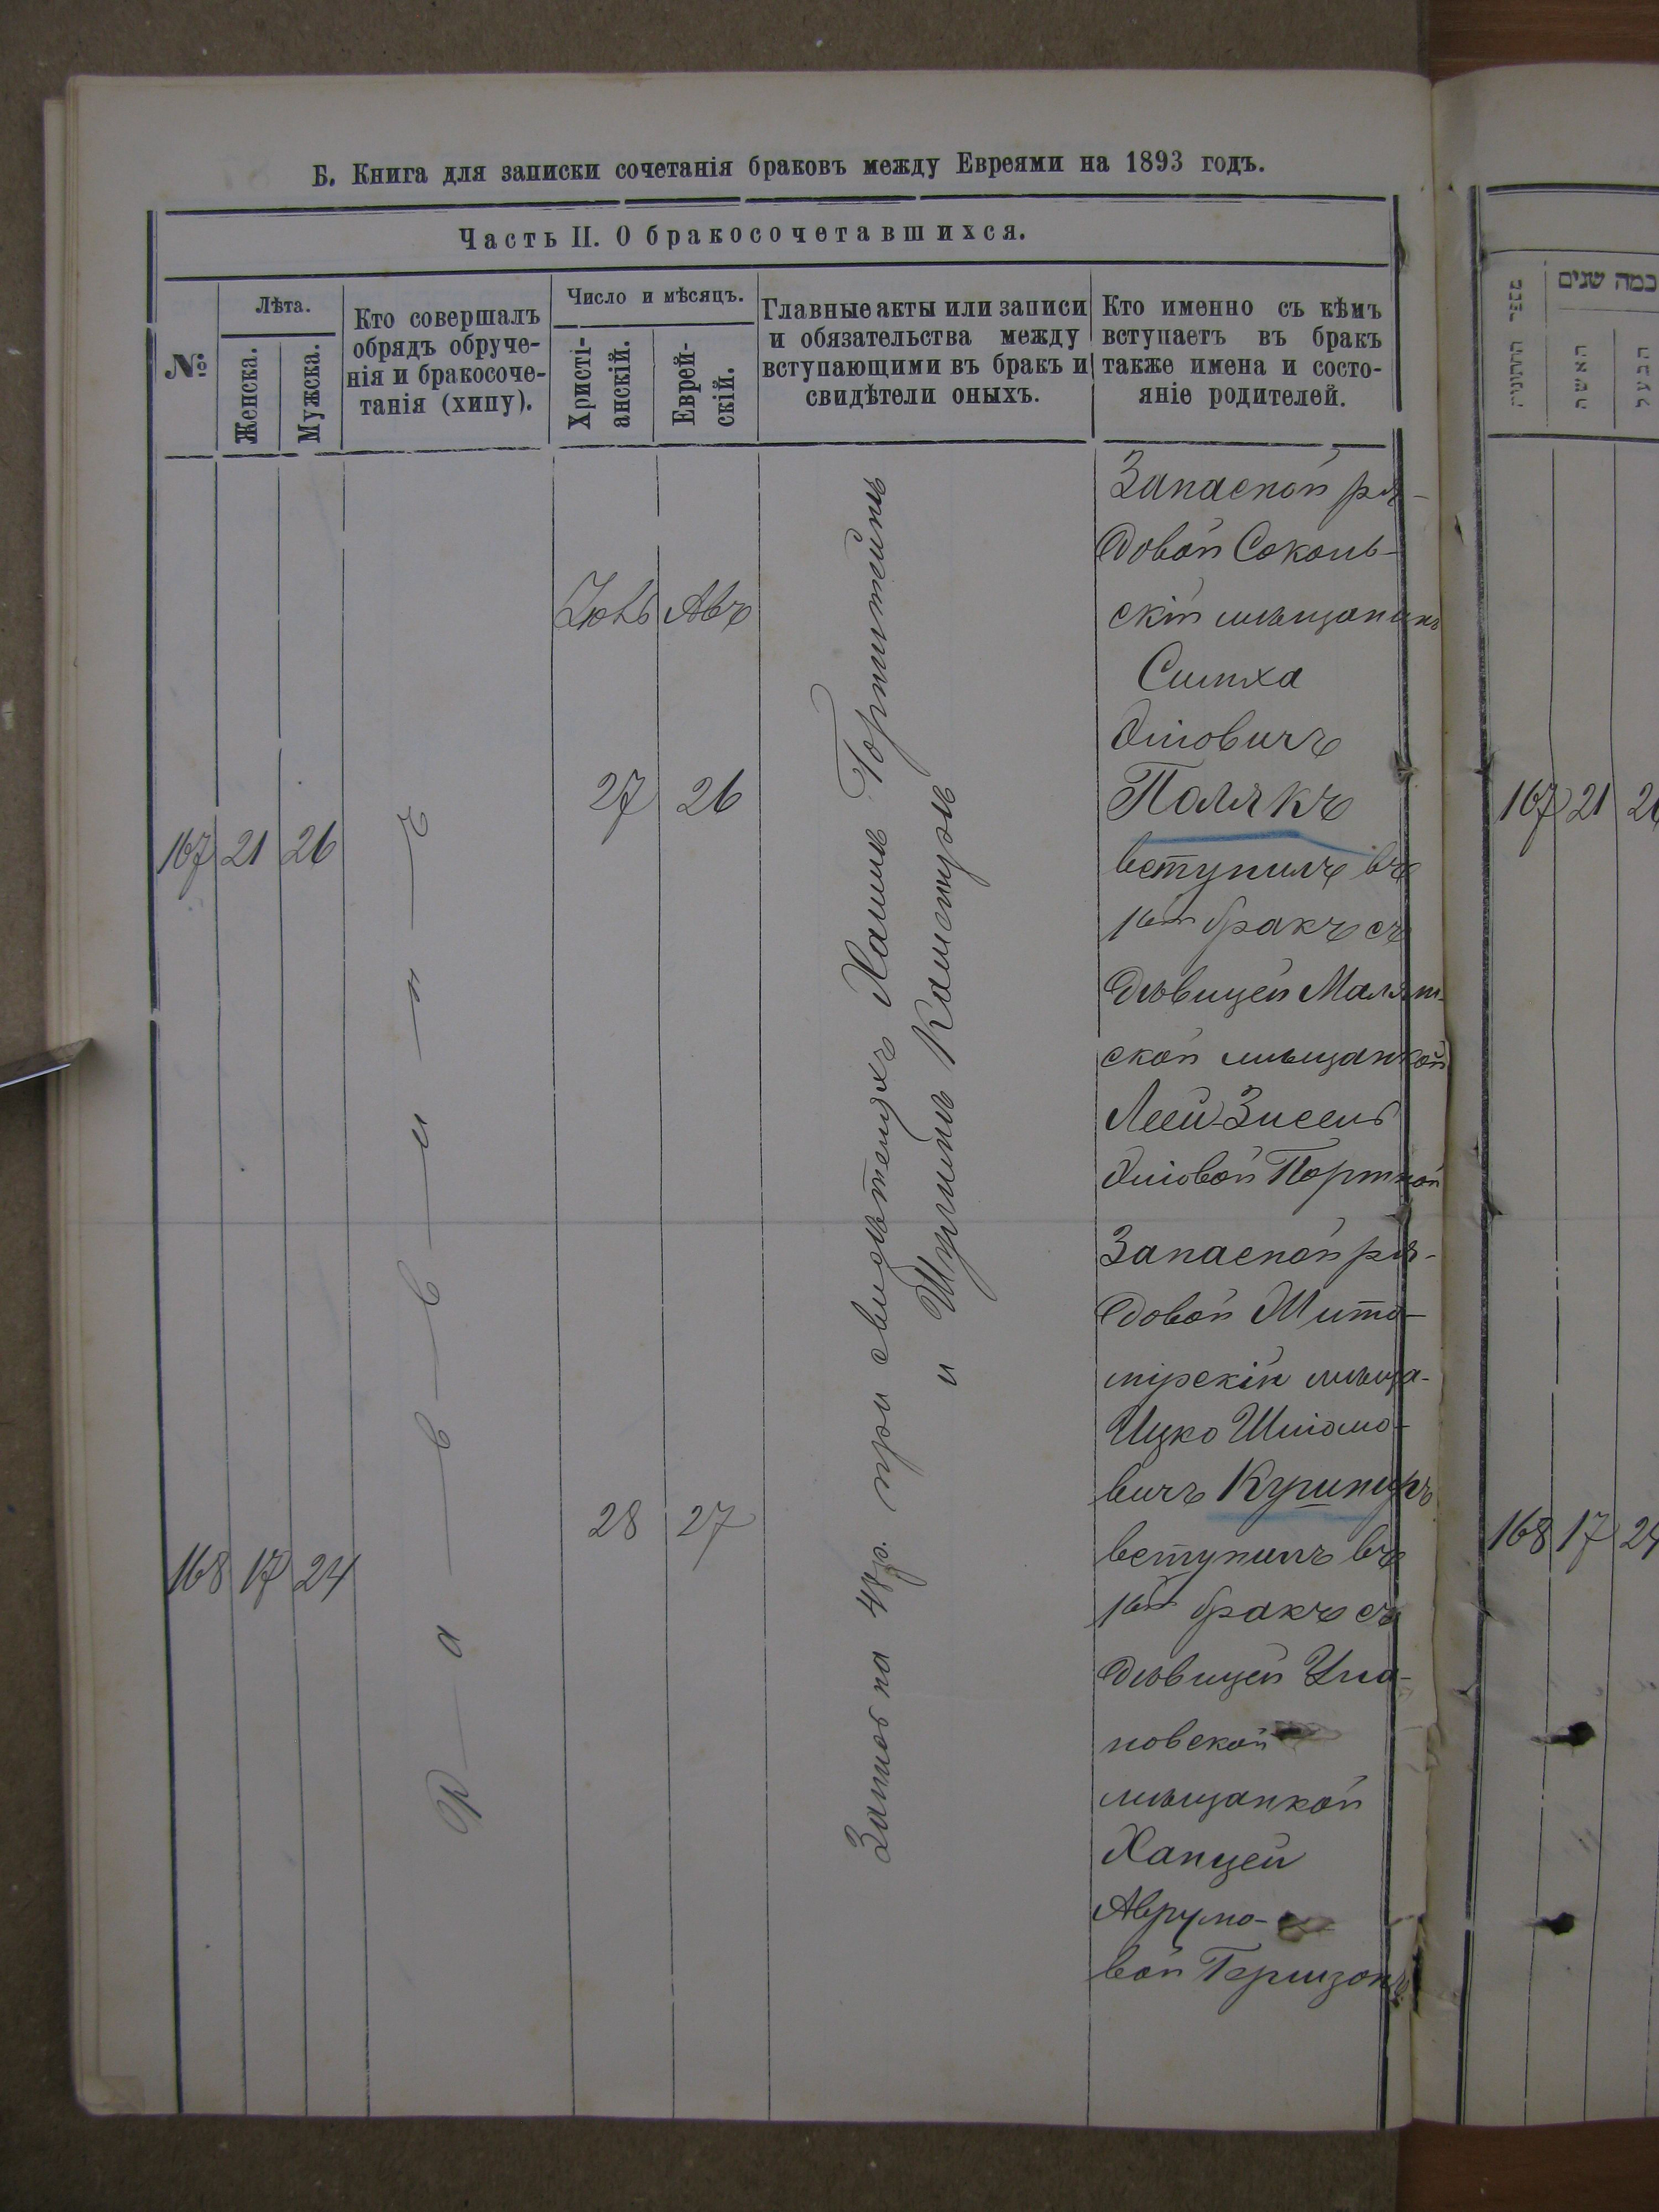 Б. Книга для записки сочетанія браковъ между Евреями на 1893 годъ.
Часть II. О бракосочетавшихся.
№
Лѣта.
Женска.
Мужска.
Кто совершалъ
обрядъ обруче-
нія и бракосоче-
танія (хипу).
Число и мѣсяцъ.
Христі-
анскій.
Еврей-
скій.
Главные акты или записи
и обязательства между
вступающими въ бракъ и
свидѣтели оныхъ.
Кто именно съ кѣмъ
вступаетъ въ бракъ
также имена и состо-
яніе родителей.
167 21 26
Р а в в и н ъ
Авъ
27 26
при свидѣтеляхъ Хаимъ Горнштейнъ
и
на 48р.
Запасной ря-
довой Соколь-
скій мѣщанинъ
Симха
Полякъ
вступилъ въ
1ый бракъ съ
дѣвицей
ской мѣщанкой
Леей-Зисель
Портной
168 17 24
28 27
Запасной ря-
довой Жито-
мірскій мѣща-
Ицко Шліомо-
вичъ
вступилъ въ
1ый бракъ съ
дѣвицей
новской
мѣщанкой
Ханцей
Аврумо-
вой Гершзонъ
כמה שנים
האשה
הבעל
167 21 2
168 17 24